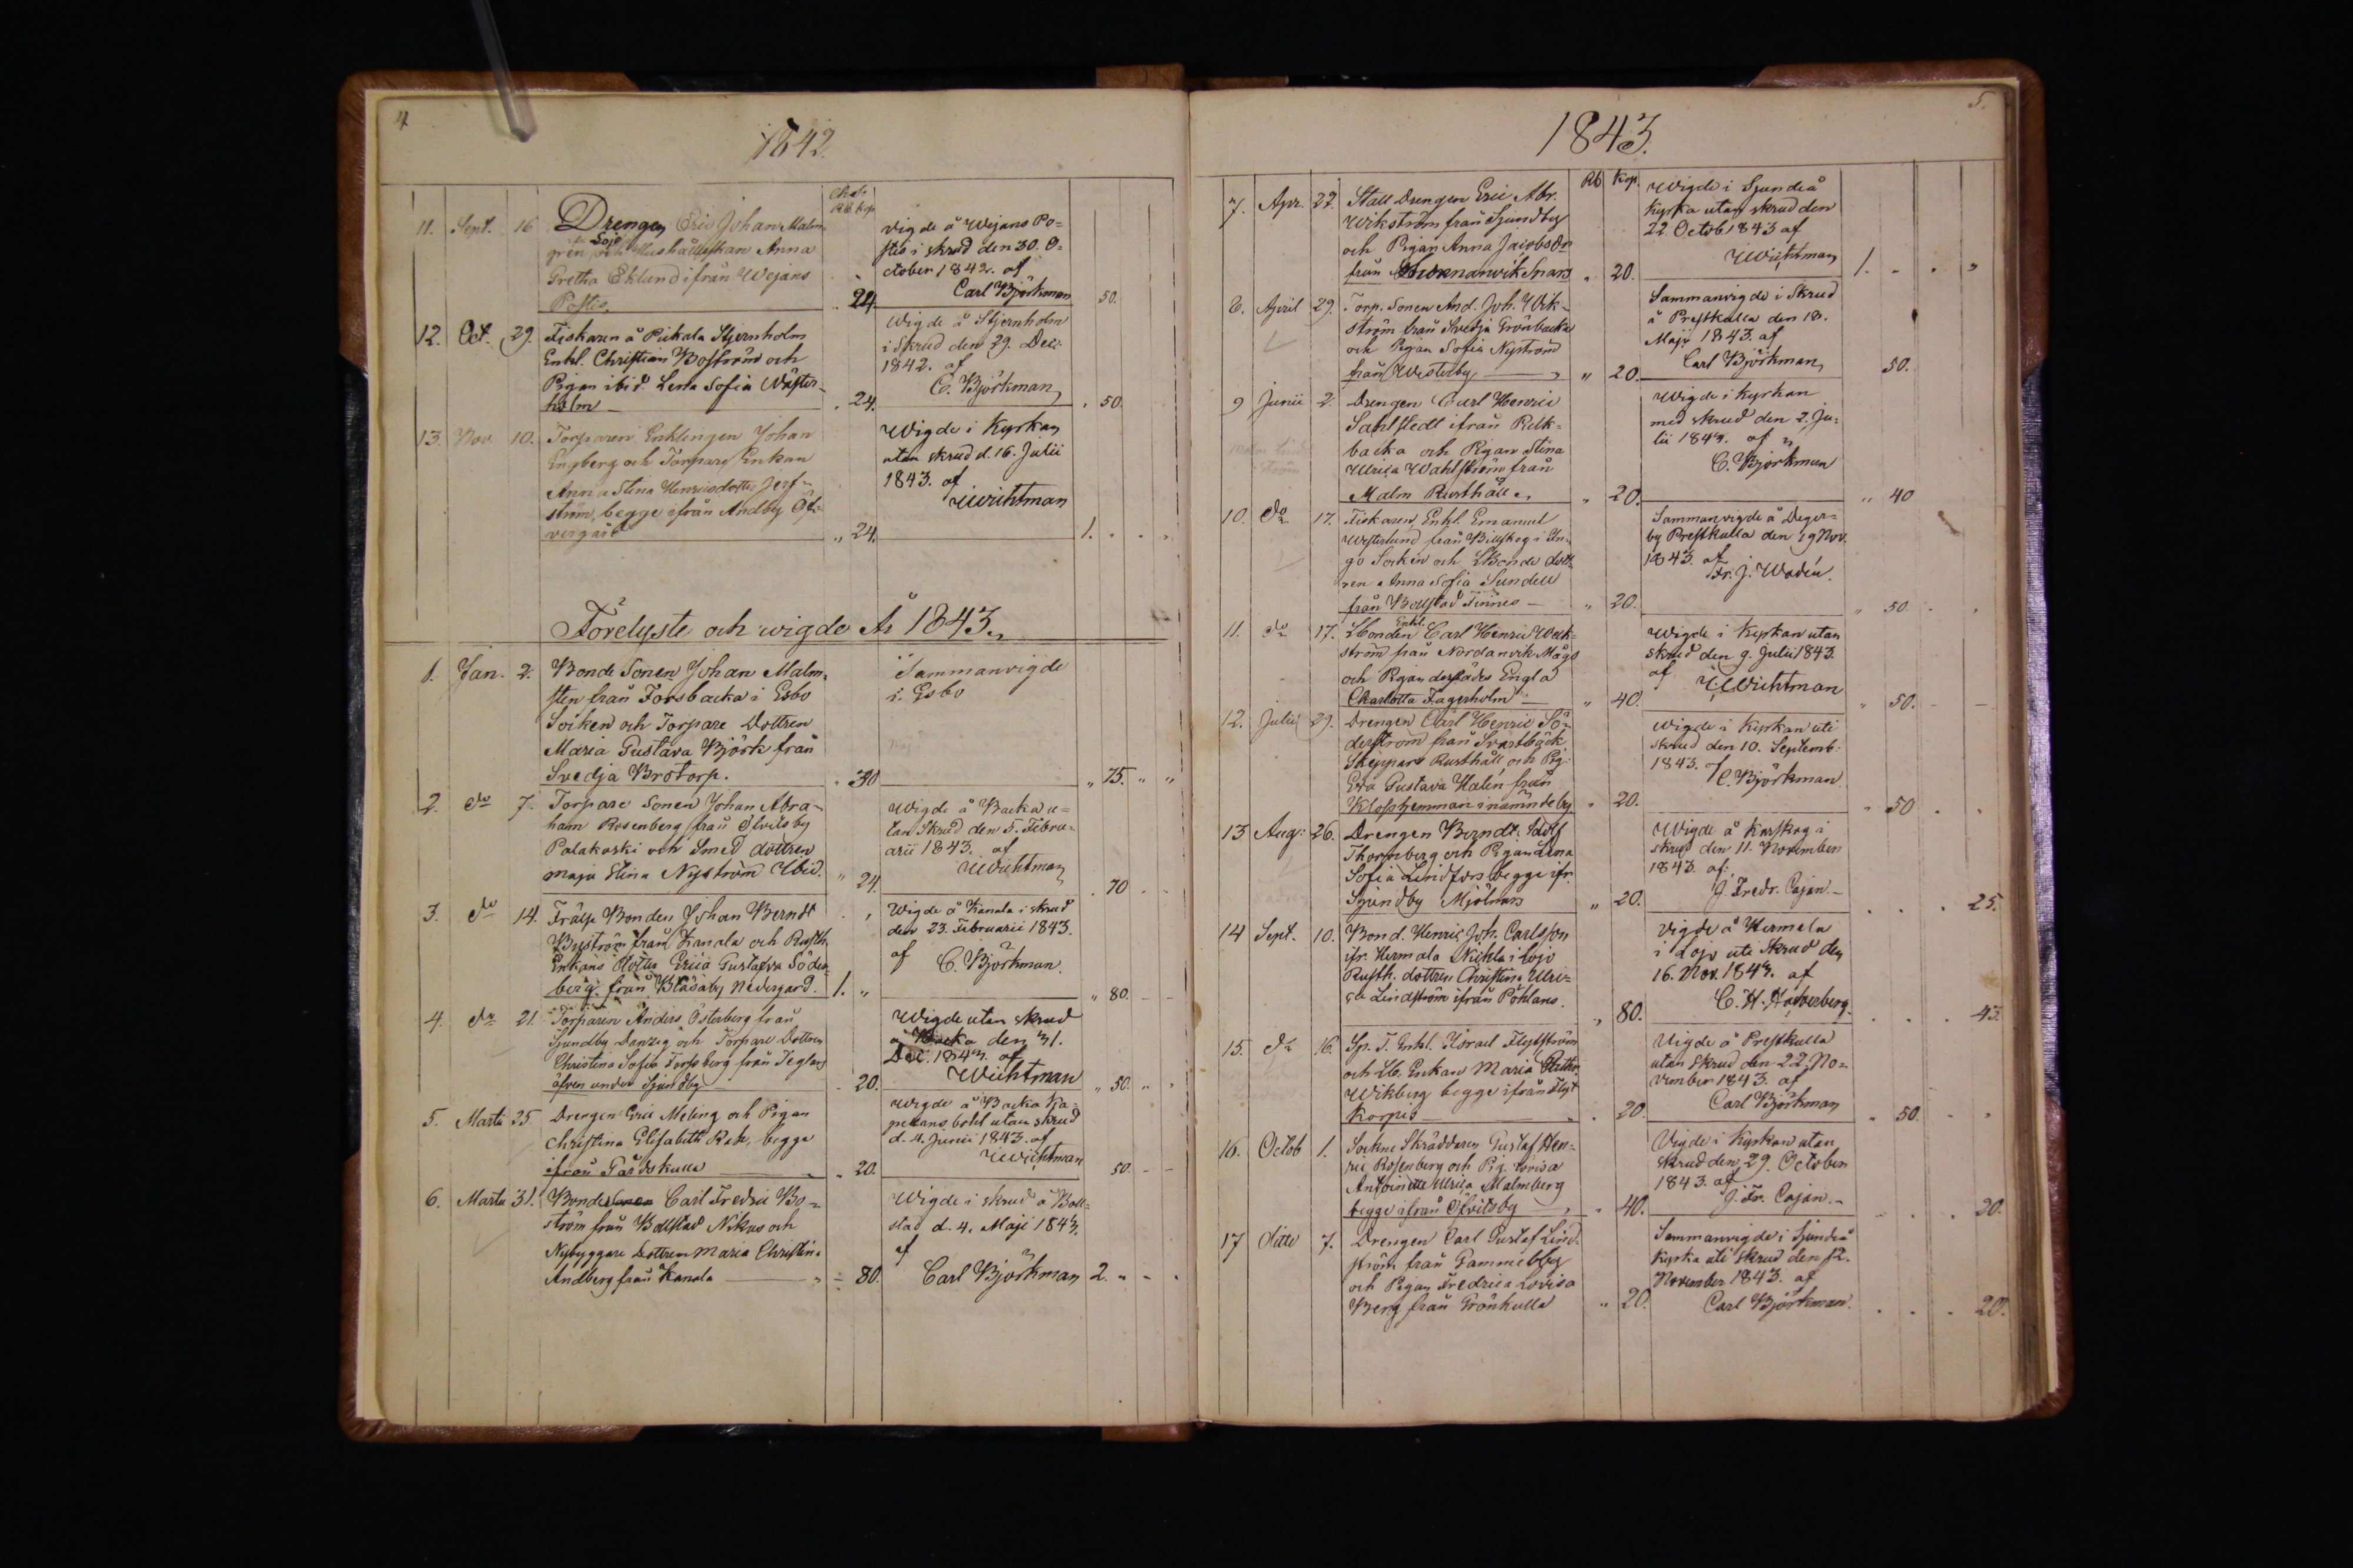 4
1842.
Chat.
Rb. Kop
11. Sept. 16 Drengen Eric Johan Malm-
gren och Hushållerskan Anna
Gretha Eklund ifrån Wejans
Postis. 24
Vigde å Wejans Po-
stis i skrud den 30. O-
ctober 1842. af
Carl Björkman 50.
12. Oct. 29. Fiskaren å Pickala Stjernholm
Enkl. Christian Boström och
Pigan ibid. Lena Sofia Wäster-
holm 24.
Wigde å Stjernholm
i skrud den 29. Dec.
1842. af
C. Björkman 50.
13. Nov. 10. Torparen Enklingen Johan
Engberg och Torpare Enkan
Anna Stina Henricsdotter Jerf-
ström, begge ifrån Andby Öf-
vergård „ 24.
Wigde i Kyrkan
utan skrud d. 16. Julii
1843. af
Wichtman 1.
Förelyste och wigde År 1843.
1. Jan. 2. Bonde Sonen Johan Malm-
sten från Forsbacka i Esbo
Socken och Torpare Dottren
Maria Gustava Björk från
Svedja Brotorp. 30
Sammanvigde
i Esbo
„ 75. „ „
2. do 7. Torpare Sonen Johan Abra-
ham Rosenberg från Ölvitsby
Palakoski och Smed dottren
Maja Stina Nyström Ibid. „ 24.
Wigde å Backa u-
tan Skrud den 5. Febru-
arii 1843. af
Wichtman 70
3. do 14. Frälse Bonden Johan Berndt
Byström från Kanala och Rusth.
Enkans Dotter Erica Gustafva Söder-
berg från Blåsaby Nedergård. 1. „
Wigde å Kanala i skrud
den 23. Februarii 1843.
af C. Björkman. „ 80.
4. do 21. Torparen Anders Österberg från
Sjundby Danzig och Torpare Dottren
Christina Sofia Forssberg från Teglars
äfven under Sjundby 20.
Wigde utan skrud
å Backa den 31.
Dec. 1843. af
Wichtman „ 50. „
5. Martii 25. Drengen Eric Meling och Pigan
Christina Elisabeth Rek, begge
ifrån Gårdskulla 20.
Wigde å Backa Ka-
pellans bohl utan skrud
d. 4. Junii 1843. af
Wichtman 50.
6. Martii 31. Bonde Carl Fredric Bo-
ström från Bollstad Nikus och
Nybyggare Dottren Maria Christina
Andberg från Kanala 80.
Wigde i skrud å Boll-
stad d. 4. Maji 1843.
af
Carl Björkman 2. „
5.
1843.
Rb Kop.
7. Apr. 22. Stall Drengen Eric Abr.
Wikström från Sjundby
och Pigan Anna Jacobsdr
från Snars „ 20.
Wigde i Sjundeå
Kyrka utan skrud den
22 Octob 1843 af
Wichtman 1.
8. April 29. Torp. Sonen And. Joh. Wik-
ström från Svedja Grönbacka
och Pigan Sofia Nyström
från Westerby „ 20.
Sammanvigde i Skrud
å Prestkulla den 18.
Maji 1843. af
Carl Björkman 50.
9 Junii 2. Drengen Carl Henric
Sahlstedt ifrån Relk-
backa och Pigan Stina
Ulrica Wahlström från
Malm Rusthåll. „ 20.
Wigde i Kyrkan
med skrud den 2. Ju-
lii 1843. af
C. Björkman „ 40
10. do 17. Fiskaren Enkl. Emanuel
Westerlund från Billskog i In-
go Socken och LBonde dott-
ren Anna Sofia Sundell
från Bollstad Finnes „ 20.
Sammanvigde å Deger-
by Prestkulla den 19 Nov.
1843. af
Fr. J. Wadén. „ 50.
11. do 17. LBonden Enkl. Carl Henric Weck-
ström från Nordanvik Mågs
och Pigan derstädes Engla
Charlotta Fagerholm „ 40.
Wigde i Kyrkan utan
skrud den 9. Julii 1843.
af Wichtman „ 50.
12. Julii 29. Drengen Carl Henric Sö-
derström från Svartbäck
Skeppars Rusthåll och Pig.
Eva Gustava Halén från
Klostjemman i nämnde by „ 20.
Wigde i Kyrkan uti
skrud den 10. Septemb.
1843. af
C. Björkman. „ 50
13 Aug: 26. Drengen Berndt Adolf
Thornberg och Pigan Lena
Sofia Lindfors begge ifr.
Sjundby Mjölnars „ 20.
Wigde å Karskog i
skrud den 11. November
1843. af
J. Fredr. Cajan 25.
14 Sept. 10. Bond. Henric Joh. Carlsson
ifr. Hermala Nickla i Lojo
Rusth. dottren Christina Ulri-
ca Lindström ifrån Pöhlans. „ 80.
Vigde å Hermala
i Lojo uti Skrud den
16. Nov. 1843. af
C. H. 43.
15. do 16. Sp. T. Enkl. Israel Flytström
och Lb. Enkan Maria Cathr.
Wikberg begge ifrån Flyt
Korpis 20.
Vigde å Prestkulla
utan skrud den 22 No-
vember 1843. af
Carl Björkman „ 50.
16. Octob 1. Sockne Skräddaren Gustaf Hen-
ric Rosenberg och Pig. Lovisa
Antoinetta Ulrica Malmberg
begge ifrån Ölvitsby 40.
Vigde i Kyrkan utan
skrud den 29. October
1843. af
J. Fr. Cajan. 20.
17 ditto 7. Drengen Carl Gustaf Lind-
ström från Gammelby
och Pigan Fredrica Lovisa
Berg från Grönkulla „ 20.
Sammanvigde i Sjundeå
Kyrka uti skrud den 12.
November 1843. af
Carl Björkman. 20.